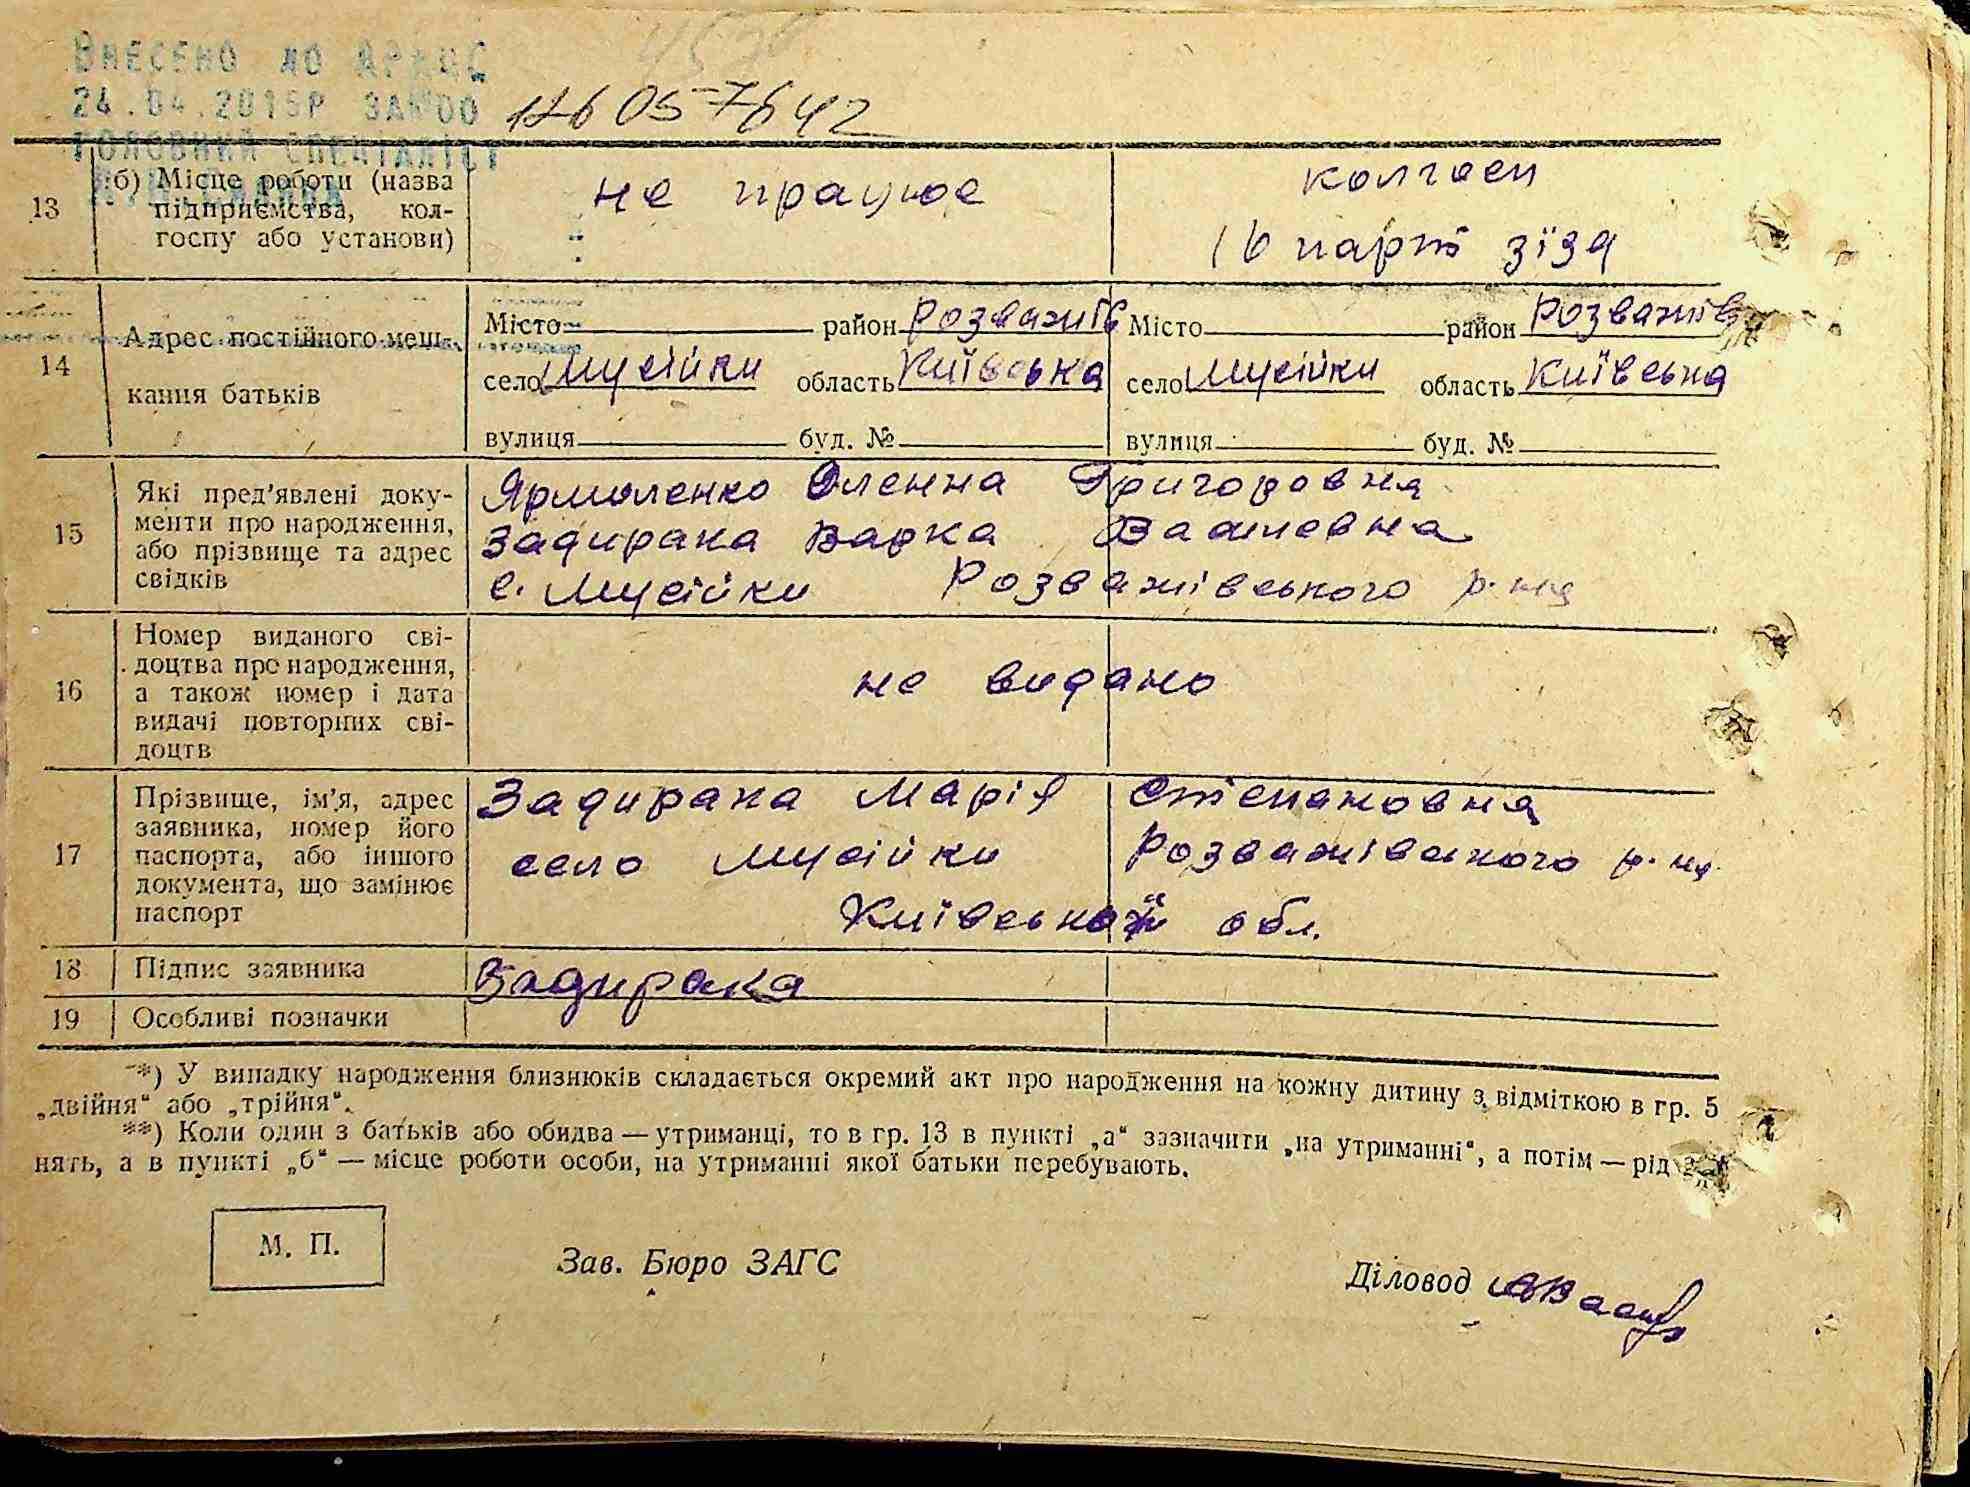 ВНЕСЕНО ДО ДРАЦС
24.04.2015Р ЗА№00
ГОЛОВНИЙ СПЕЦІАЛІСТ
7642
13
б) Місце роботи (назва
підприємства, кол-
госпу або установи)
не працює
колгосп
16 парт зїзд
14
Адрес постійного меш-
кання батьків
Місто район Розважів
село Мусійки область Київська
вулиця буд. №
Місто район Розважів
село Мусійки область Київська
вулиця буд. №
15
Які пред'явлені доку-
менти про народження,
або прізвище та адрес
свідків
Ярмоленко Оленна Григоровна
Задирака Варка
с. Мусійки Розважівського р-на
16
Номер виданого сві-
доцтва про народження,
а також номер і дата
видачі повторних сві-
доцтв
не видано
17
Прізвище, ім'я, адрес
заявника, номер його
паспорта, або іншого
документа, що замінює
паспорт
Задирака Марія Степановна
село Мусійки Розважівського р-на
Київської обл.
18
Підпис заявника
Задирака
19
Особливі позначки
*) У випадку народження близнюків складається окремий акт про народження на кожну дитину з відміткою в гр. 5
„двійня“ або „трійня“.
**) Коли один з батьків або обидва — утриманці, то в гр. 13 в пункті „а“ зазначити „на утриманні“, а потім — рід за-
нять, а в пункті „б“ — місце роботи особи, на утриманні якої батьки перебувають.
М. П.
Зав. Бюро ЗАГС
Діловод